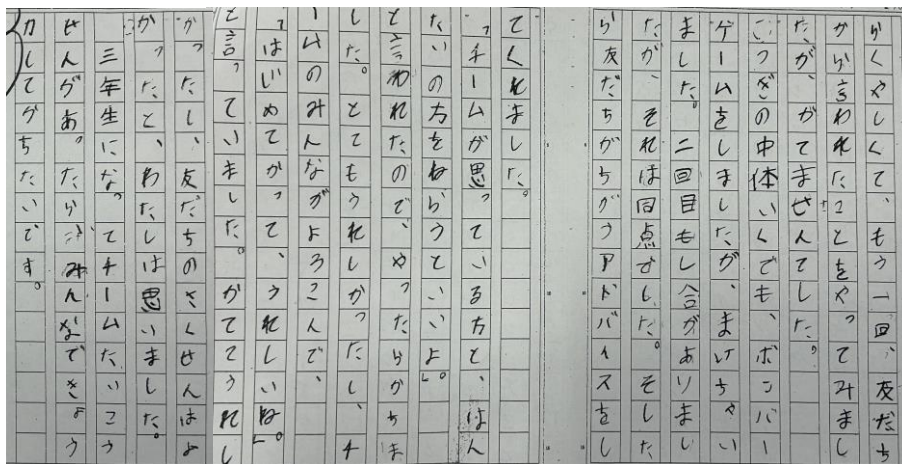 らくやしくて、もう一回、友だち
から言われたことをやってみまし
たが、がてませんでした。
ごつぎの中体いくでも、ボンバー
ゲームをしましたが、まけちゃい
ました。二回目もし合がありまし
たが、それは同点でした。そした
ら友だちがちがうアドバイスをし
てくれました。
「チームが思っている方と、はん
たいの方をねらうといいよ」。
と言われたので、やったらかちま
した。とてもうれしかったし、チ
ームのみんながよろこんで、
「はじめてかって、うれしいね」。
と言っていました。かててうれし
かったし、友だちのさくせんはよ
かったと、わたしは思いました。
三年生になってチームたいこう
せんがあったら、みんなできょう
力してがちたいです。